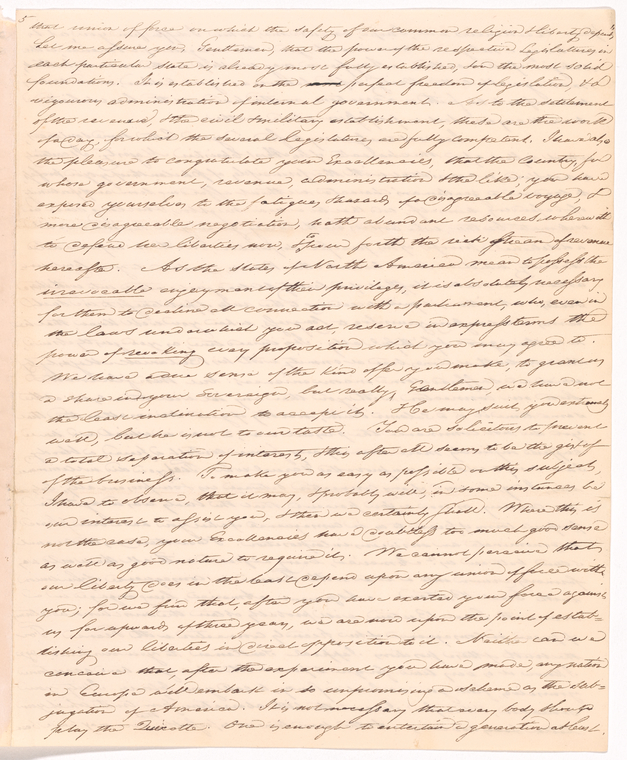 5
that union of force on which the safety of our common religion & liberty depends.
Let me assure you, Gentlemen, that the power of the respective Legislatures in
each particular state is already most fully established, & on the most solid
foundations. It is established on the perfect freedom of legislation, & a
vigorous administration of internal government. As to the settlement
of the revenue, & the civil & military establishment, these are the work
of a day, for which the several legislatures are fully competent. I have also
the pleasure to congratulate your Excellencies, that the Country, for
whose government, revenue, administration & the like, you have
exposed yourselves to the fatigues & hazards, of a disagreeable voyage, &
more disagreeable negotiation, hath abundant resources wherewith
to defend her liberties now, & pour forth the rich stream of revenue
hereafter. As the States of North America mean to possess the
irrevocable enjoyment of their privileges, it is absolutely necessary
for them to decline all connection with a parliament, who, even in
the laws under which you act, reserve in express terms the
power of revoking every proposition which you may agree to.
We have a due sense of the kind offer you make, to grant us
a share in your Sovereign, but really, Gentlemen, we have not
the least inclination to accept it. He may suit you extremely
well, but he is not to our taste. You are solicitous to prevent
a total separation of interests, & this after all seems to be the gist of
of the business. To make you as easy as possible on this subject,
I have to observe, that it may, & probably will, in some instances be
our interest to assist you, & then we certainly shall. Where this is
not the case, your Excellencies have doubtless too much good sense
as well as good nature to require it. We cannot perceive that
our liberty does in the least depend upon any union of force with
you; for we find that, after you have exerted your force against
us for upwards of three years, we are now upon the point of estab-
lishing our liberties in direct opposition to it. Neither can we
conceive that, after the experiment you have made, any nation
in Europe will embark in so unpromising a scheme as the sub-
jugation of America. It is not necessary that every body should
play the Quixotte. One is enough to entertain a generation at least.